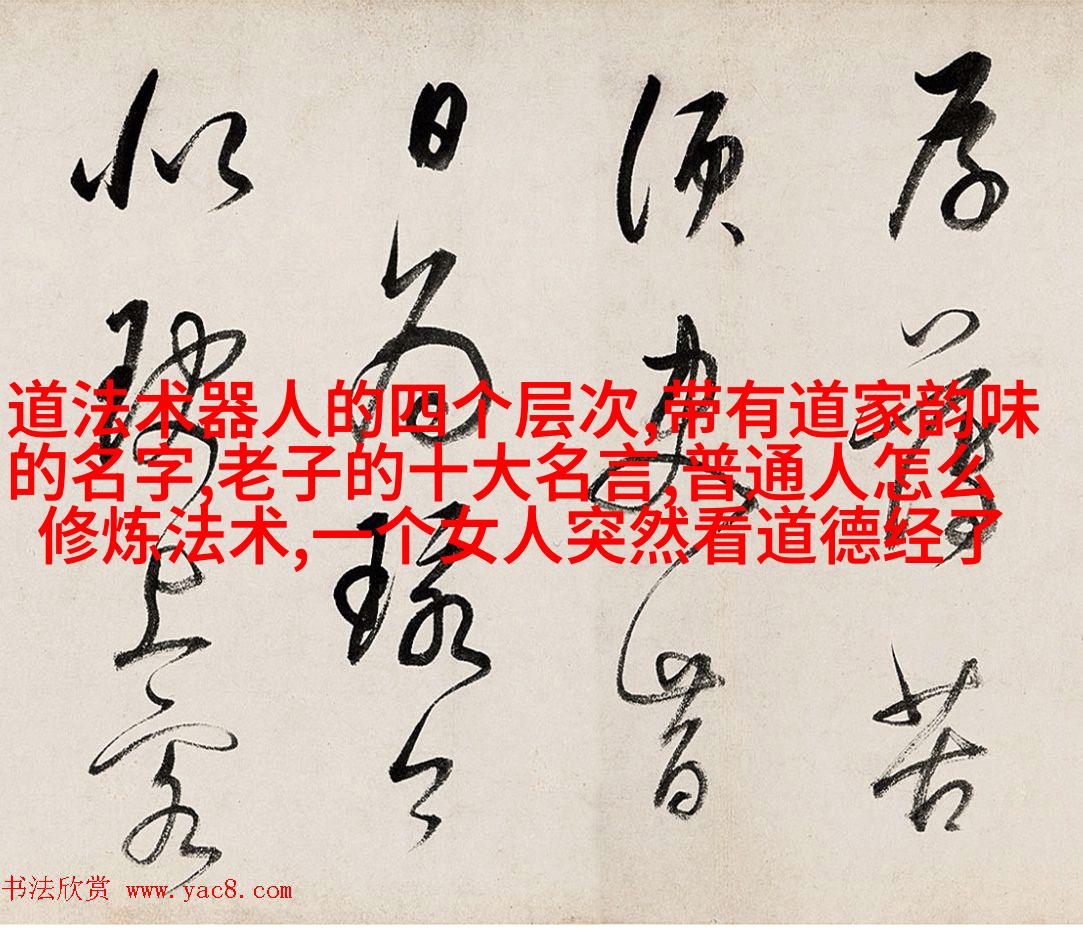 道法术器人的四个层次,带有道家韵味
的名字,老子的十大名言,普通人怎么
修炼法术,一个女人突然看道德经了
苦
須
日為
似
上客
书法欣赏 www.yac8.com